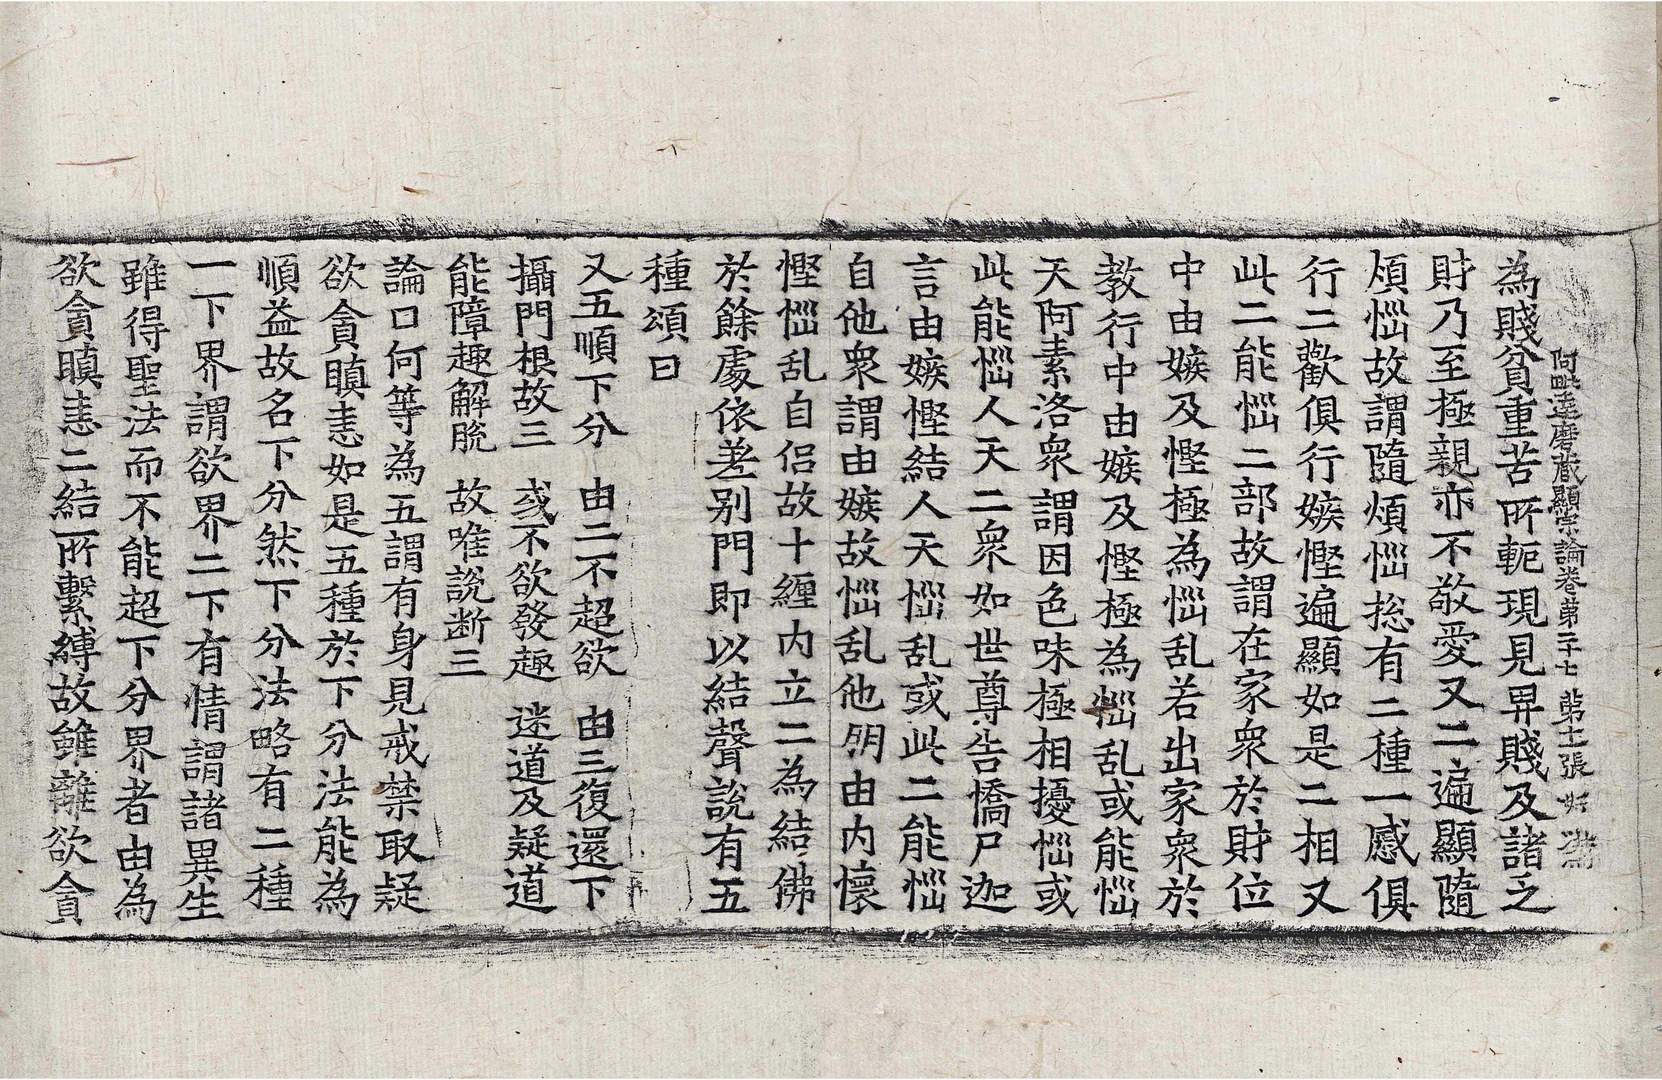 阿毗達磨蔵顯宗論卷苐二十七　苐十二張　　為
為賤貧重苦所軛現見畀賤及諸乏
財乃至極親亦不敬愛又二遍顯隨
煩惱故謂隨煩惱捴有二種一慼俱
行二歡俱行嫉慳遍顯如是二相又
此二能惱二部故謂在家衆於財位
中由嫉及慳極為惱乱若出家衆於
教行中由嫉及慳極為惱乱或能惱
天阿素洛衆謂因色味極相擾惱或
此能惱人天二衆如世尊告憍尸迦
言由嫉慳結人天惱乱或此二能惱
自他衆謂由嫉故惱乱他朋由內懷
慳惱乱自侶故十纏內立二為結佛
於餘處依差别門即以結聲說有五
種頌曰
又五順下分　由二不超欲　由三復還下
攝門根故三　或不欲發趣　迷道及疑道
能障趣解脫　故唯說断三
論曰何等為五謂有身見戒禁取疑
欲貪瞋恚如是五種於下分法能為
順益故名下分然下分法略有二種
一下界謂欲界二下有情謂諸異生
雖得聖法而不能超下分界者由為
欲貪瞋恚二結所繫縛故雖離欲貪